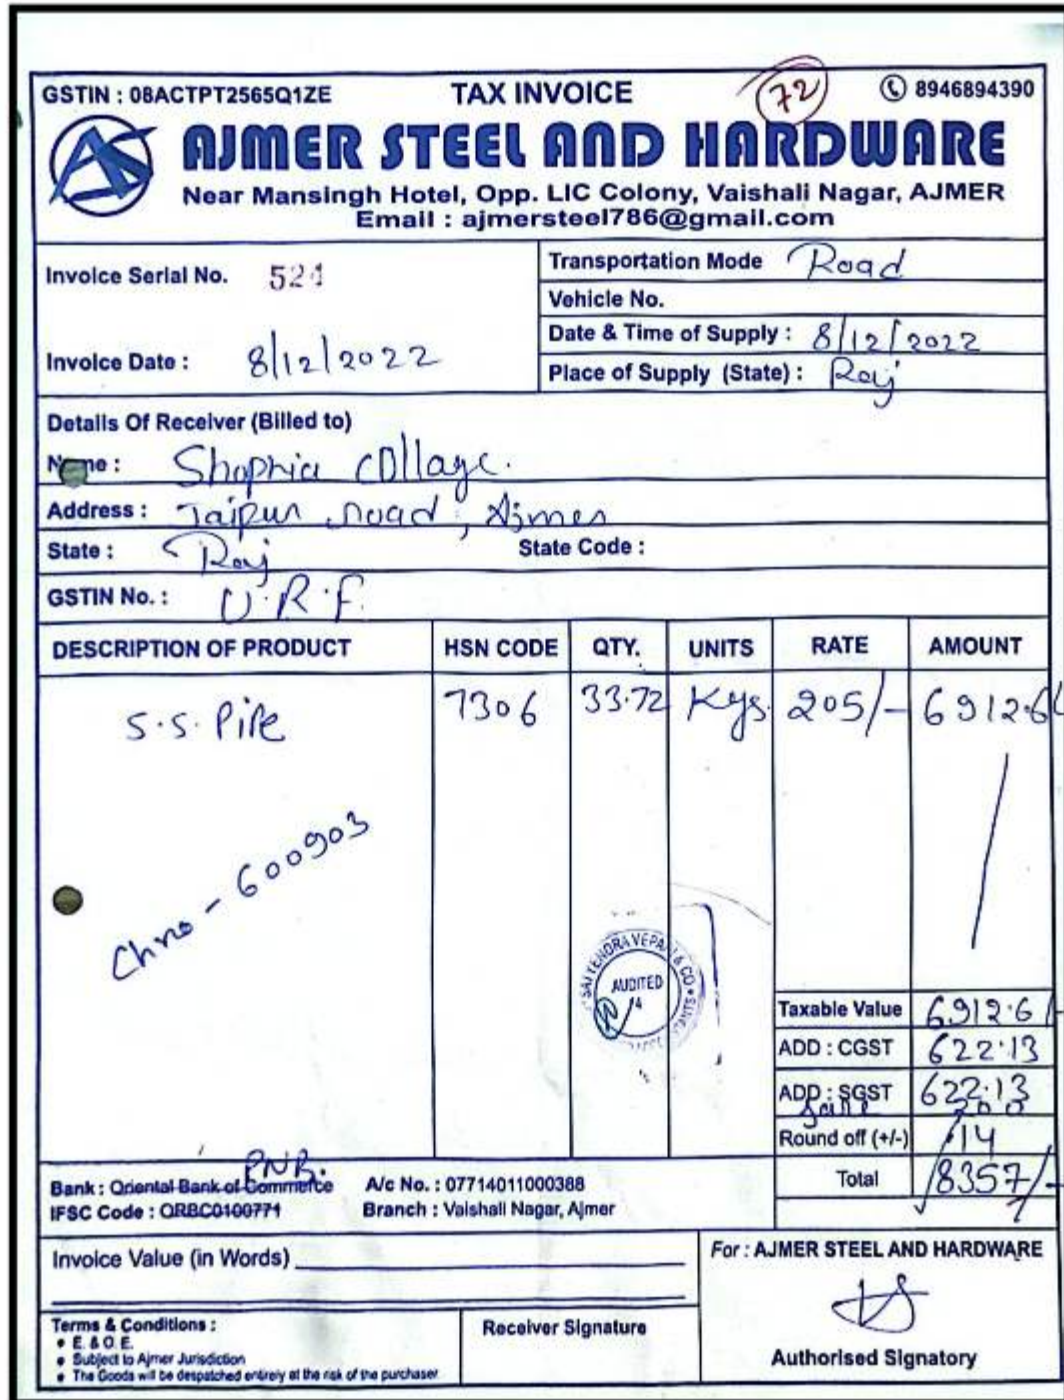 GSTIN : 08ACTPT2565Q1ZE TAX INVOICE 72 8946894390
AJMER STEEL AND HARDWARE
Near Mansingh Hotel, Opp. LIC Colony, Vaishali Nagar, AJMER
Email : ajmersteel786@gmail.com
Invoice Serial No. 524
Transportation Mode Road
Vehicle No.
Invoice Date : 8/12/2022
Date & Time of Supply : 8/12/2022
Place of Supply (State) : Raj
Details Of Receiver (Billed to)
Name : Shophia Collage.
Address : Jaipur road, Ajmer
State : Raj State Code :
GSTIN No. : U.R.F.
DESCRIPTION OF PRODUCT HSN CODE QTY. UNITS RATE AMOUNT
S.S. Pipe 7306 33.72 Kgs. 205/- 6912.6
Chno - 600903
AUDITED
Taxable Value 6912.6/-
ADD : CGST 622.13
ADD : SGST 622.13
200
Round off (+/-) .14
Total 8357/-
PNB.
Bank : Oriental Bank of Commerce A/c No. : 07714011000388
IFSC Code : ORBC0100771 Branch : Vaishali Nagar, Ajmer
Invoice Value (in Words)
For : AJMER STEEL AND HARDWARE
Terms & Conditions :
• E. & O. E.
• Subject to Ajmer Jurisdiction
• The Goods will be despatched entirely at the risk of the purchaser
Receiver Signature
Authorised Signatory